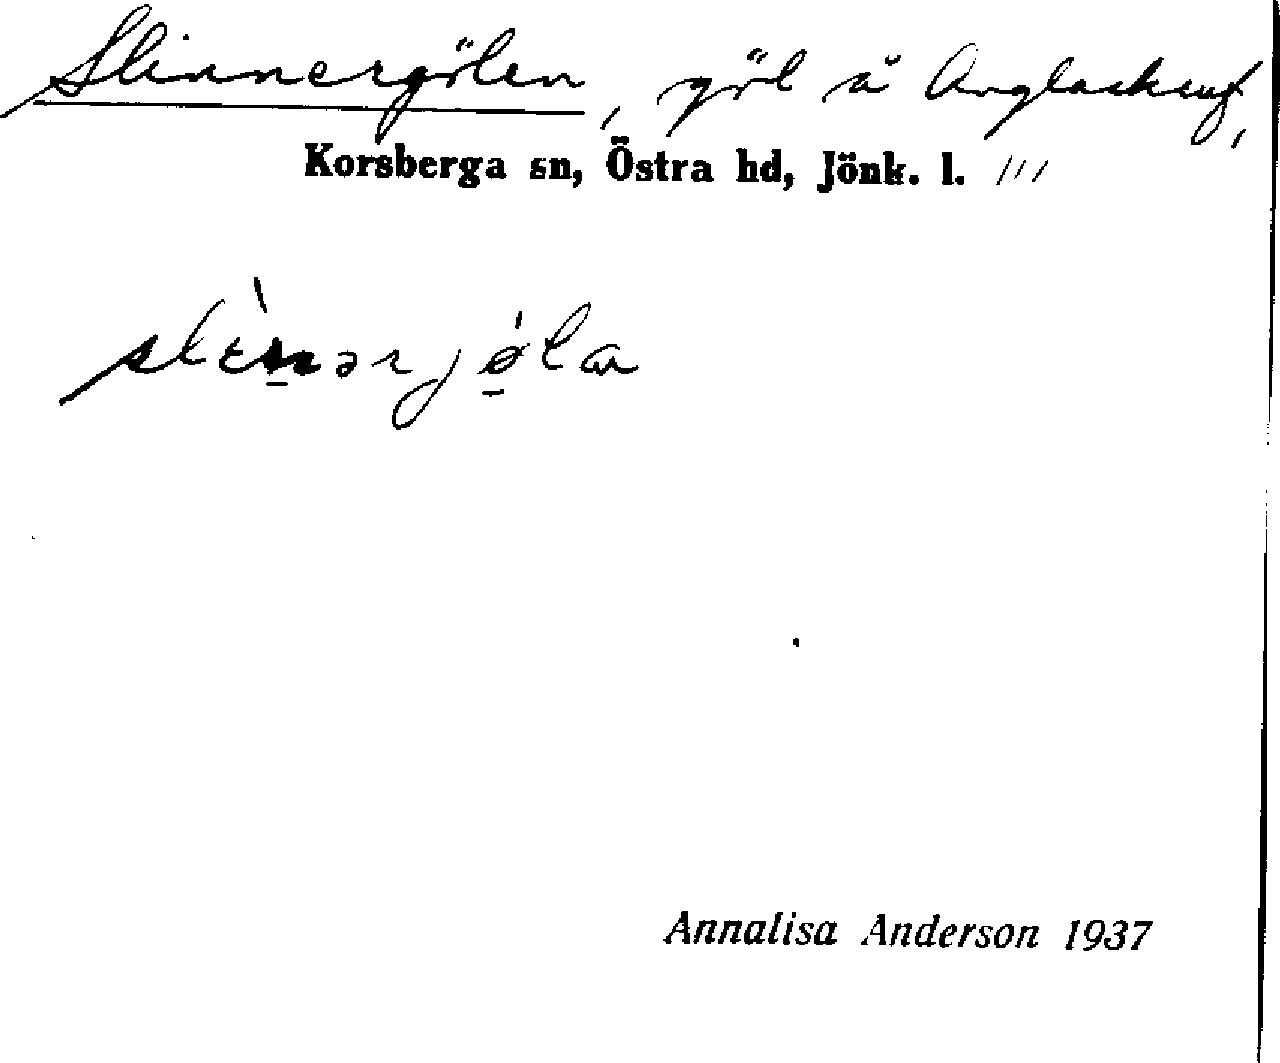 Slinnergölen, göl å
Korsberga sn, Östra hd, Jönk. l. ///
Annalisa Anderson 1937